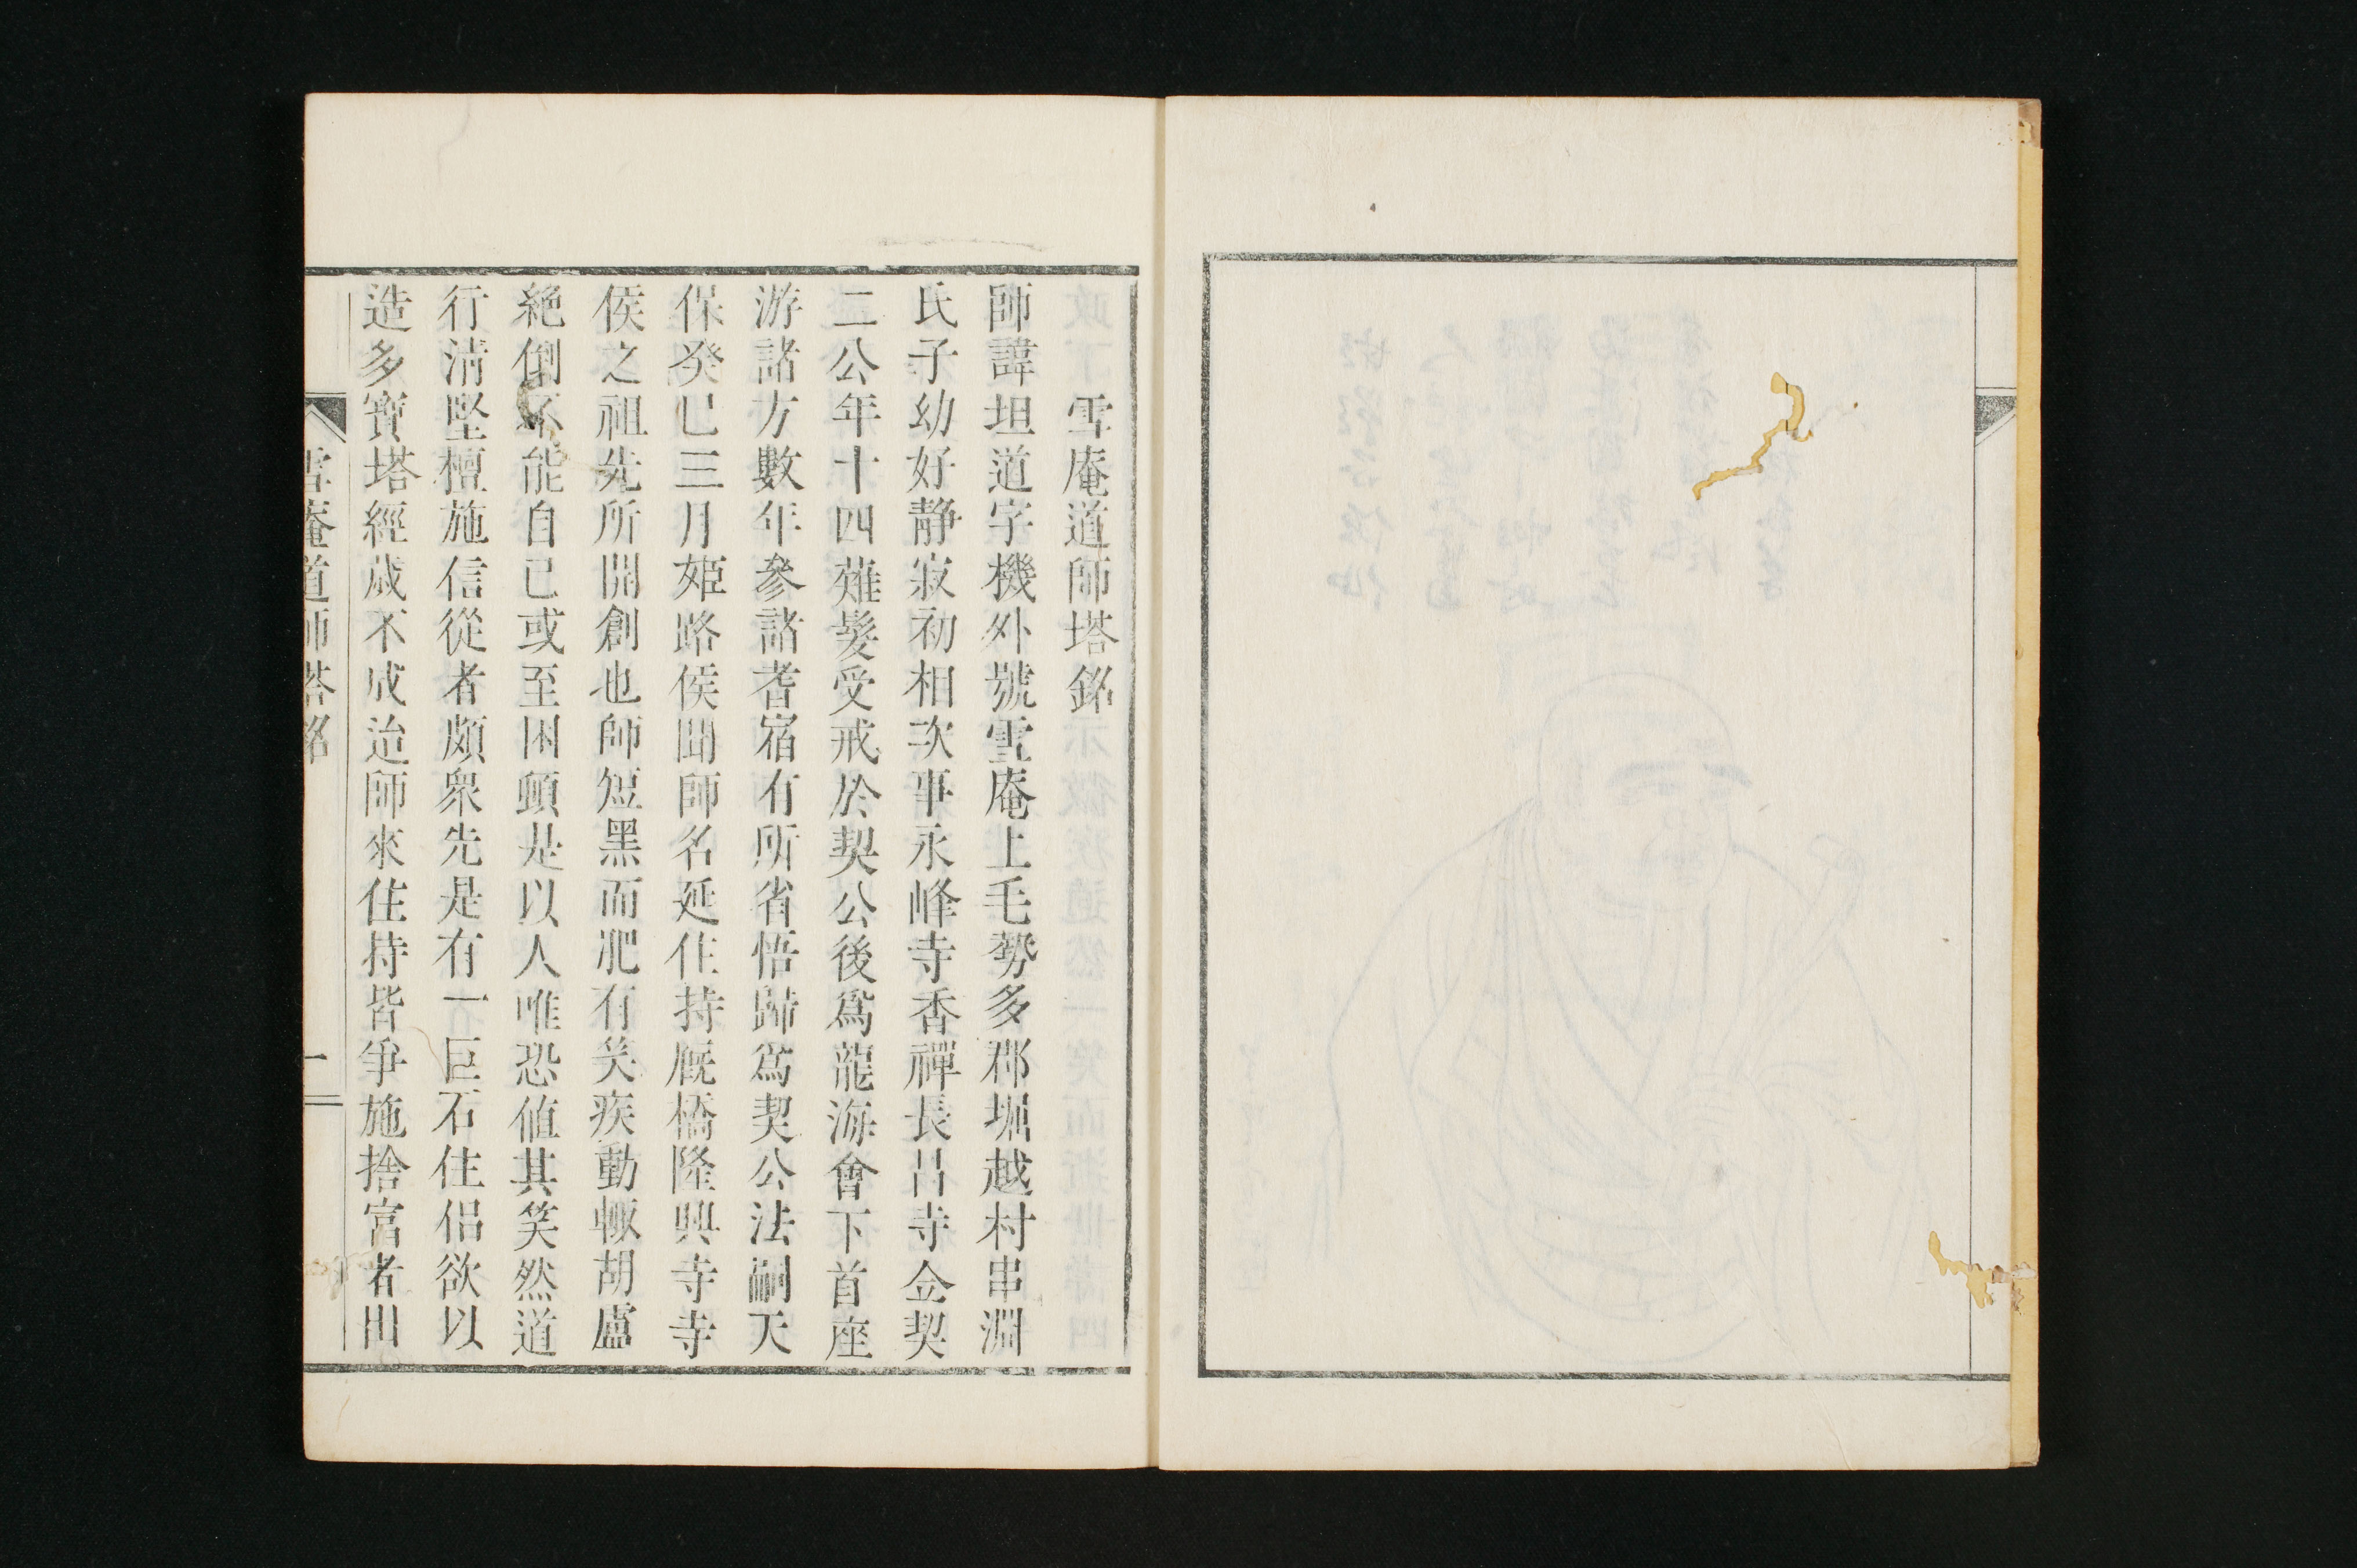 雪庵道師塔銘
師諱坦道字機外號雪庵上毛勢多郡堀越村串淵
氏子幼好靜寂初相次事永峰寺香禪長昌寺金契
二公年十四薙髮受戒於契公後爲龍海會下首座
游諸方數年參諸耆宿有所省悟歸爲契公法嗣天
保癸巳三月姫路侯聞師名延住持厩橋隆興寺寺
侯之祖先所開創也師短黑而肥有笑疾動輙胡盧
絶倒不能自已或至困頓是以人唯恐値其笑然道
行淸堅檀施信從者頗衆先是有一巨石住侶欲以
造多寶塔經歲不成迨師來住持皆爭施捨富者出
雪庵道師塔銘 一